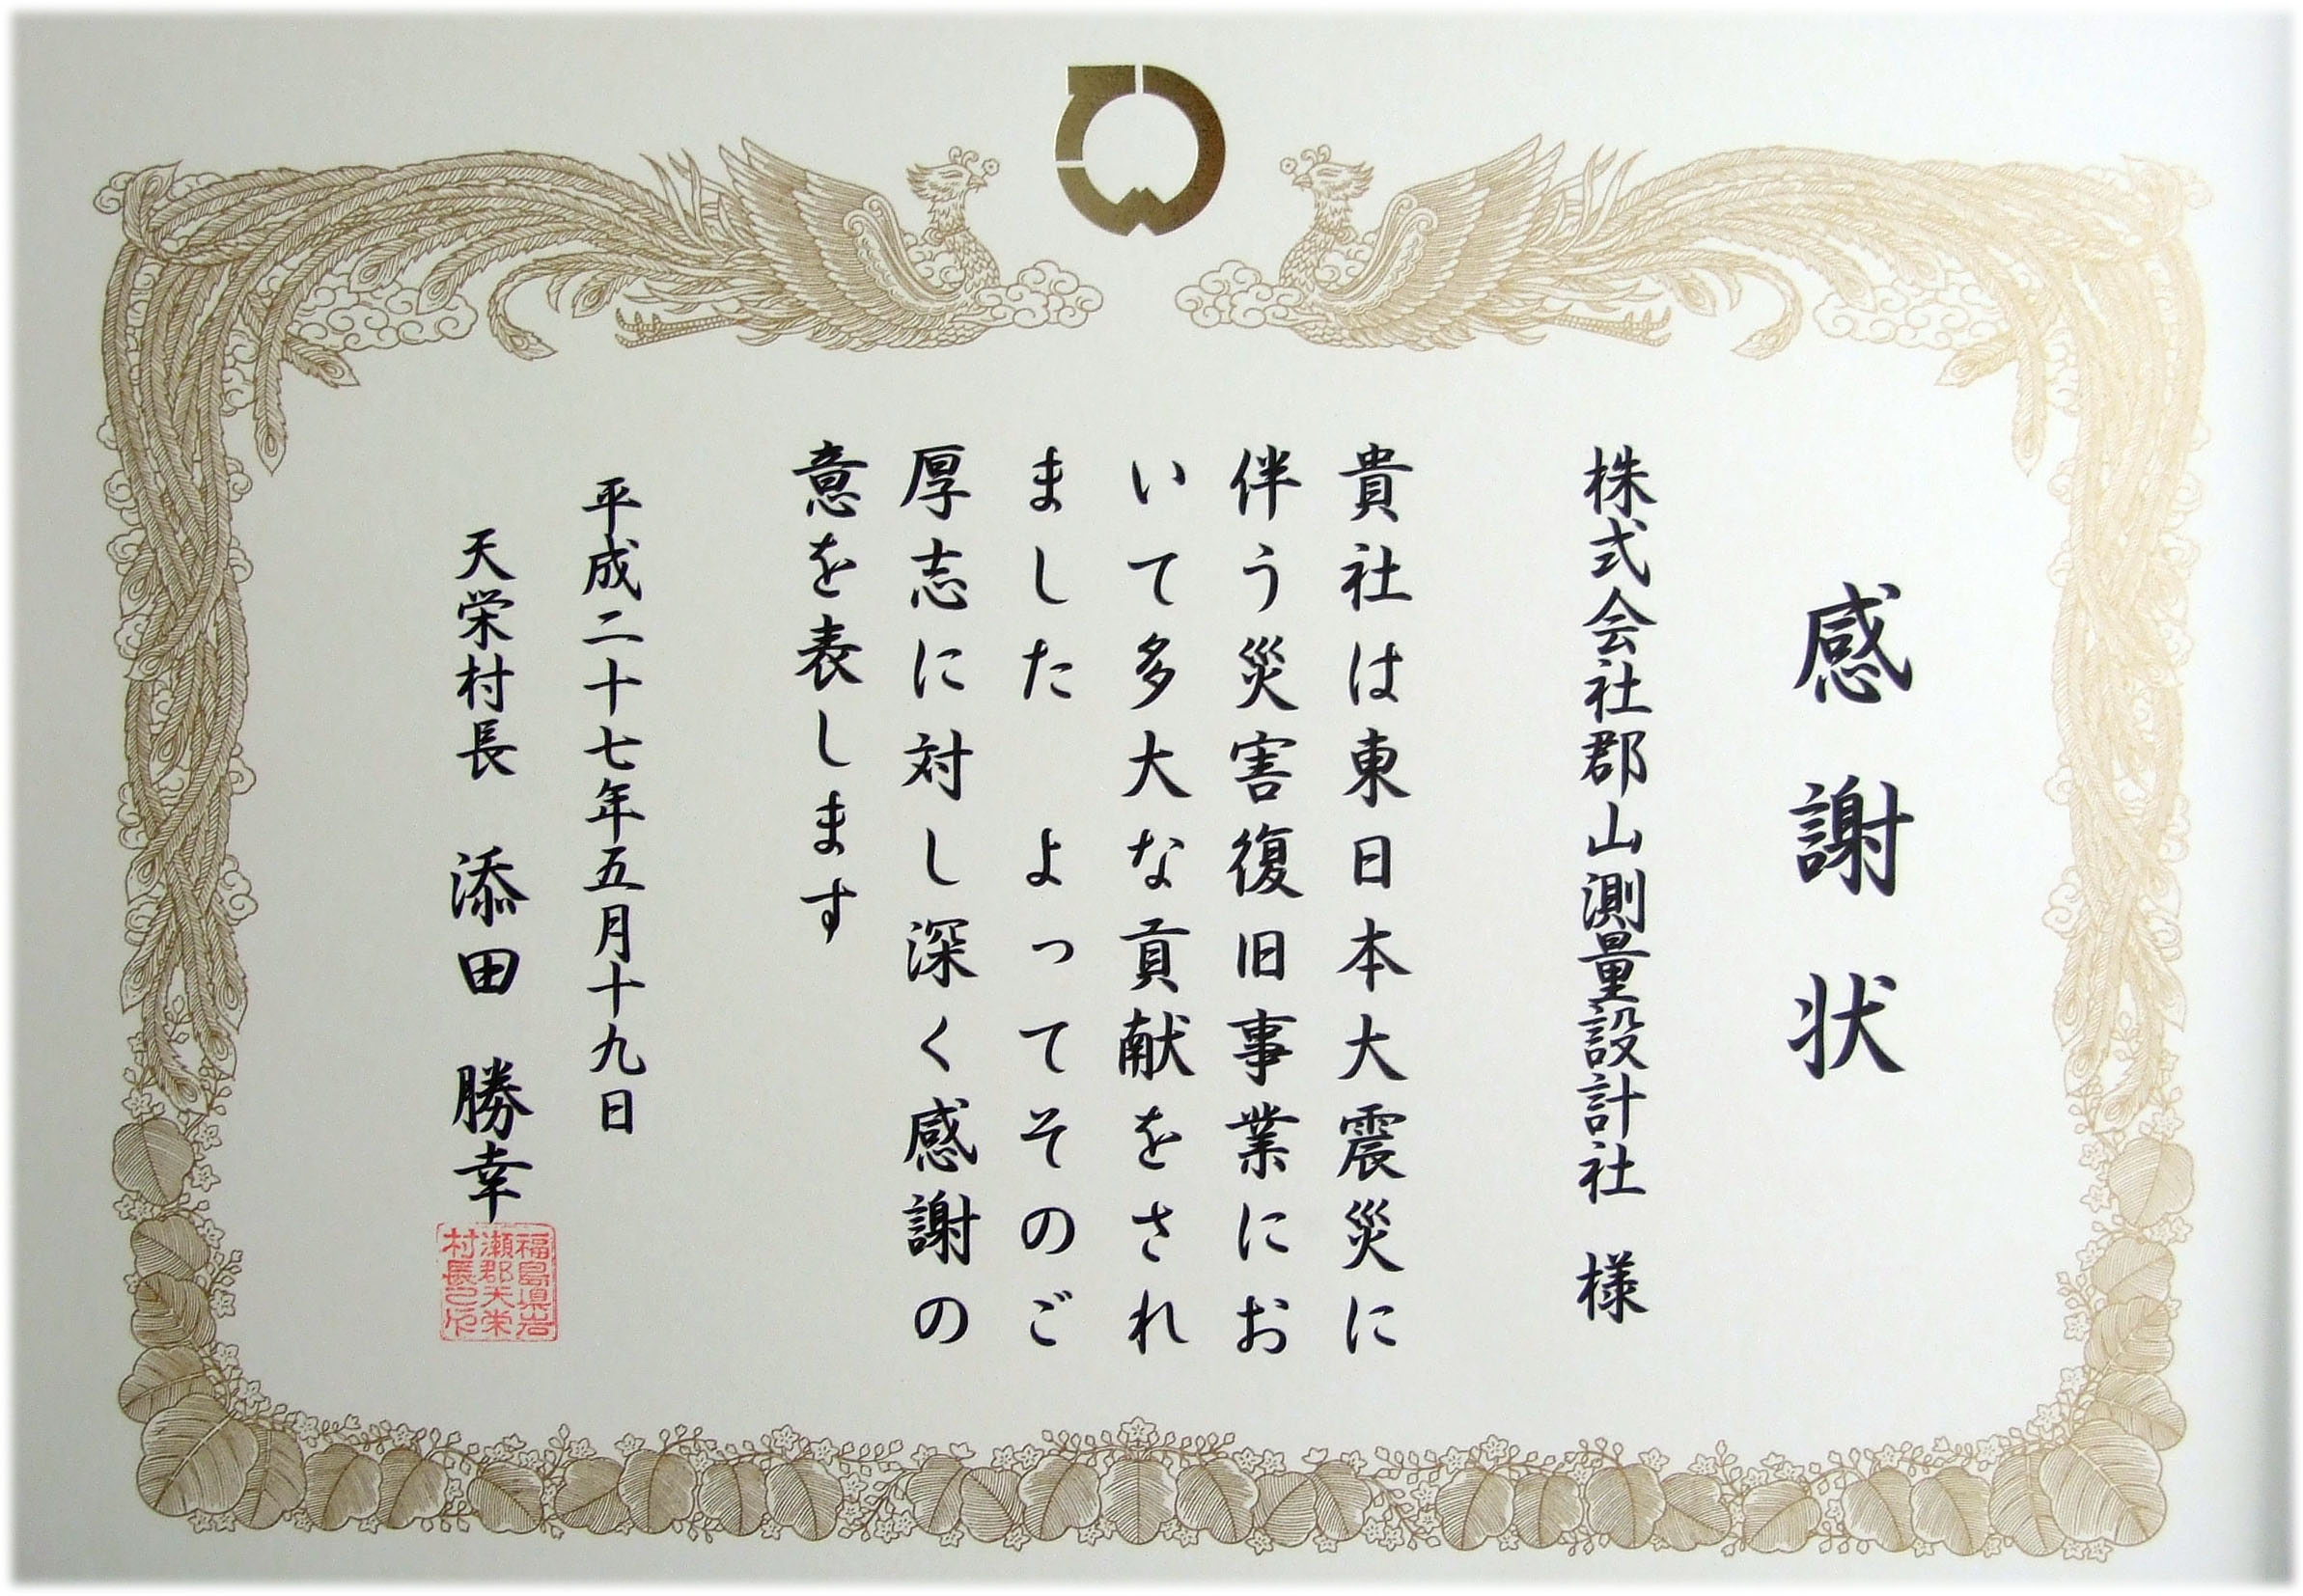 感謝状
株式会社郡山測量設計社　様
貴社は東日本大震災に
伴う災害復旧事業にお
いて多大な貢献をされ
ました　よってそのご
厚志に対し深く感謝の
意を表します
平成二十七年五月十九日
天栄村長　添田　勝幸
福島県岩
瀬郡天栄
村長之印